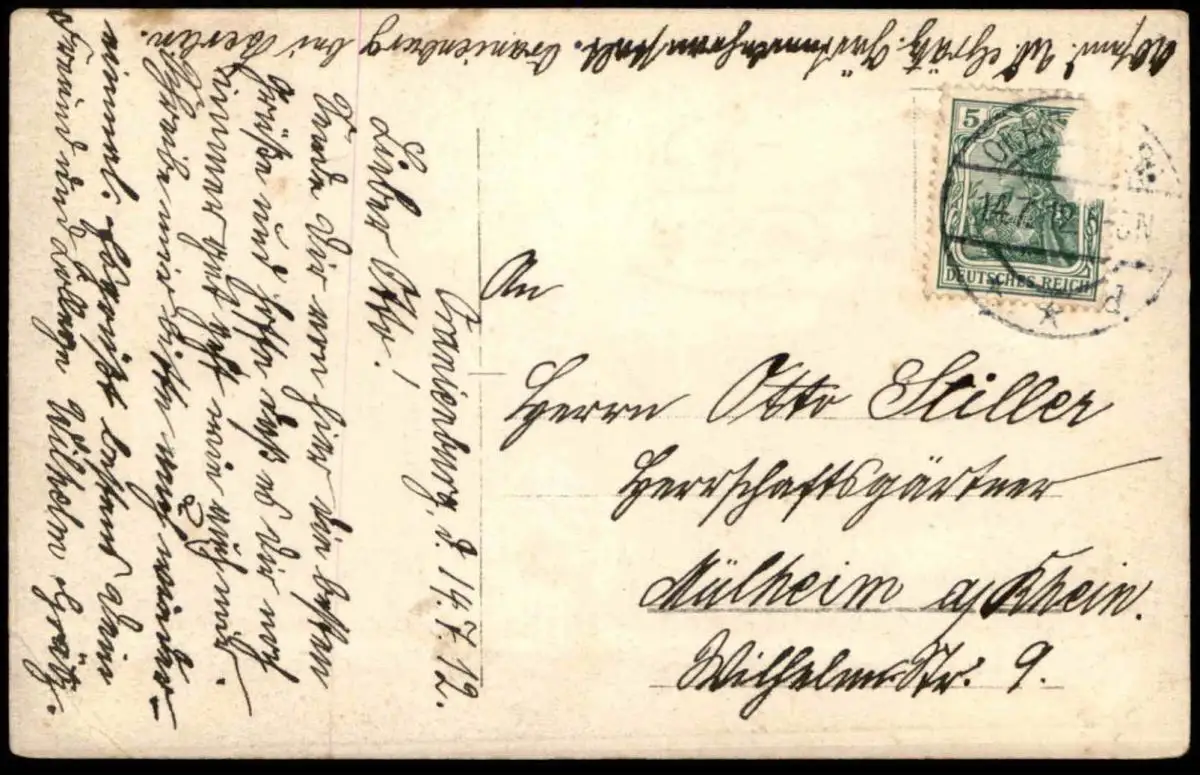 Oranienburg, d. 14.7.12.
Lieber Otto!
Sende Dir von hier die besten
Grüße und hoffe daß es Dir noch
immer gut geht wie auch mir.
Schreibe mir bitte auch wieder
einmal. Es grüßt bestens Dein
Freund und Kollege Wilhelm Grätz.
Absend. W. Grätz. Oranienburg bei Berlin.
5
14.7.12
DEUTSCHES REICH
An
Herrn Otto Stiller
Herrschaftsgärtner
Mülheim a/Rhein.
Wilhelm-Str. 9.